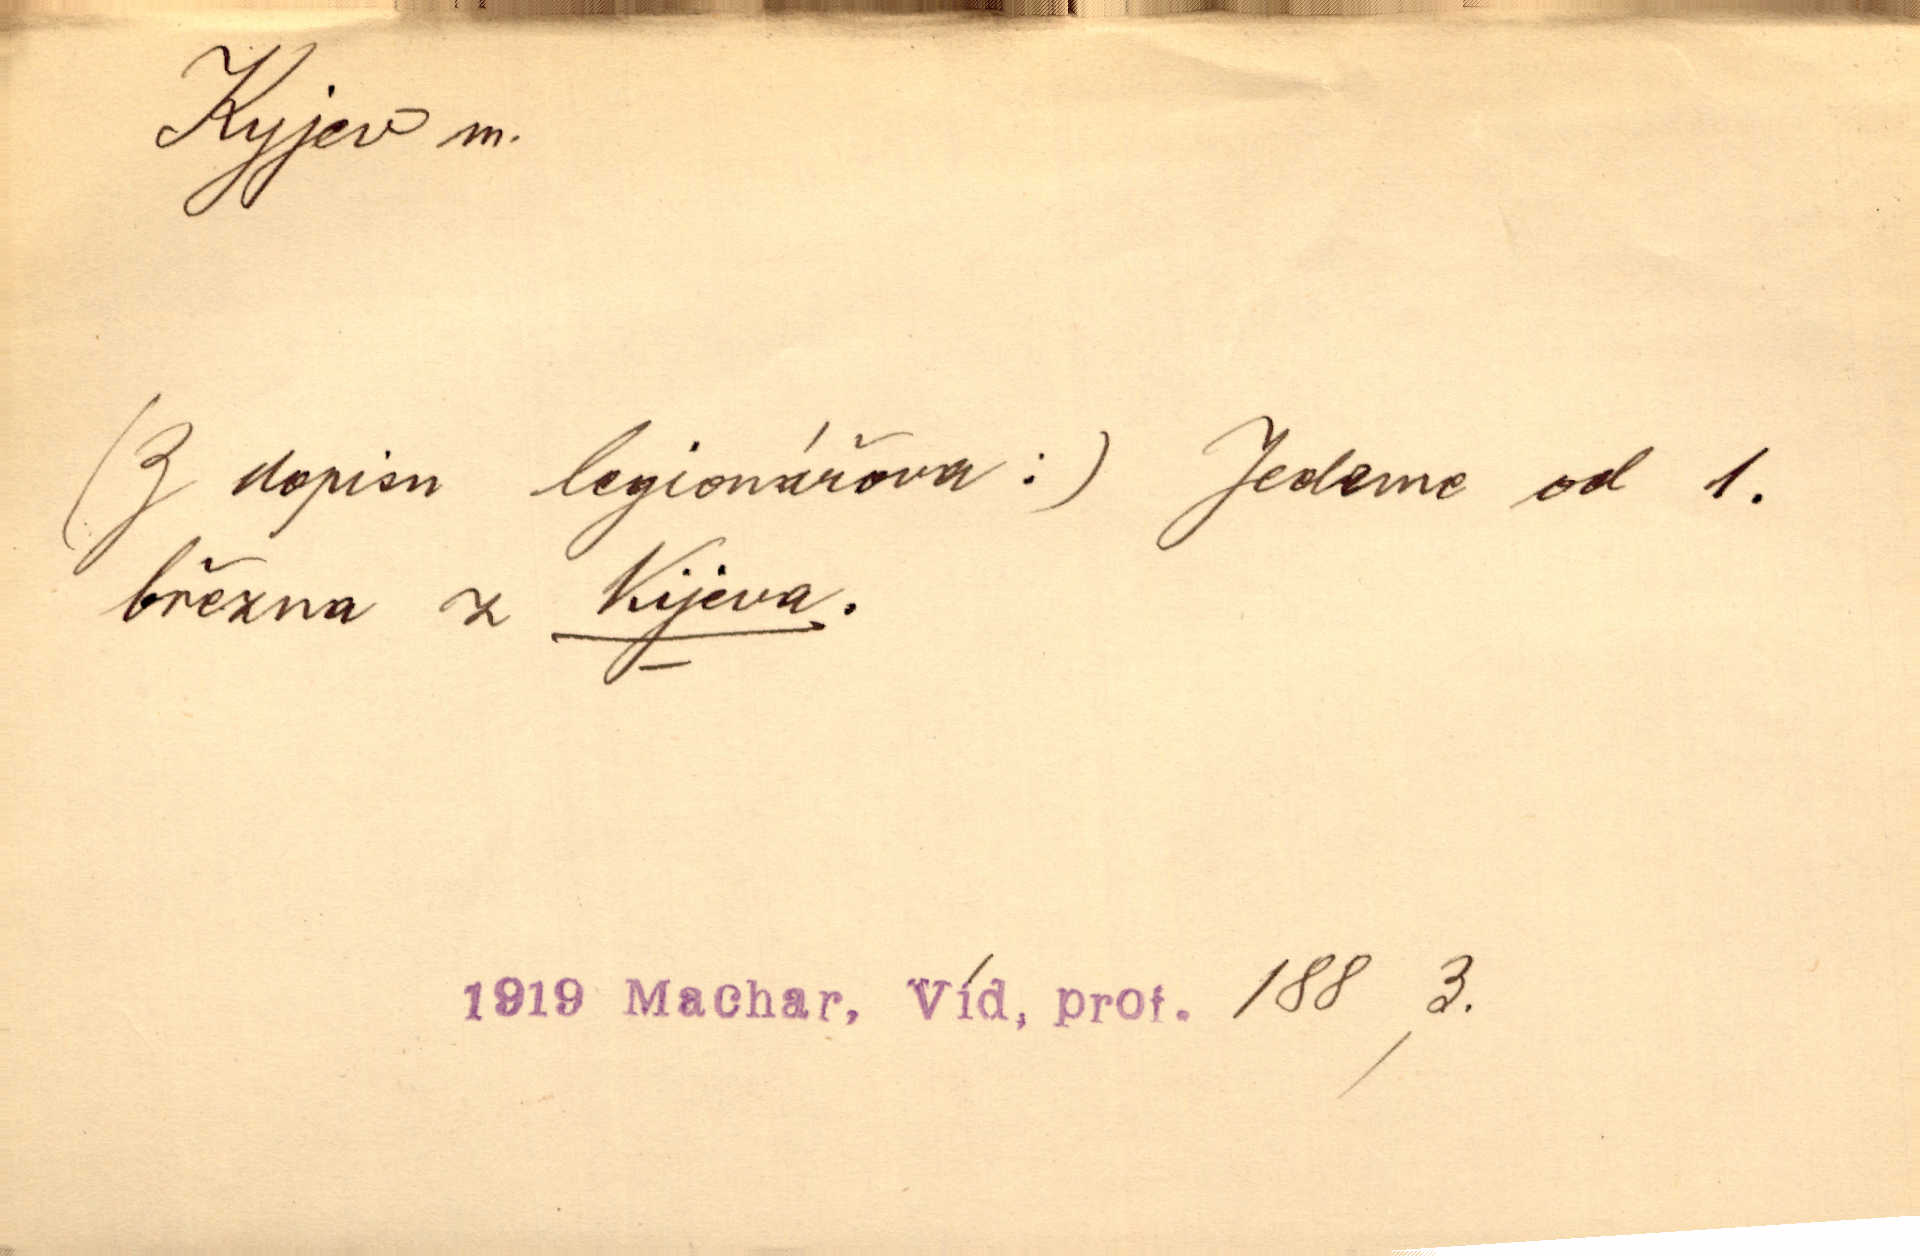 Kyjev m.
(Z dopisu legionářova:) Jedeme od 1.
března z Kijeva.
1919 Machar, Víd, prof. 188, 3.